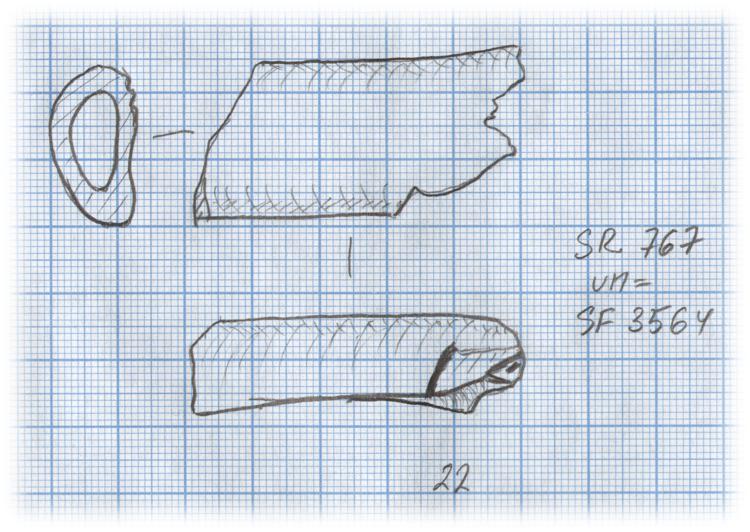 SR 767
un=
SF 3564
22